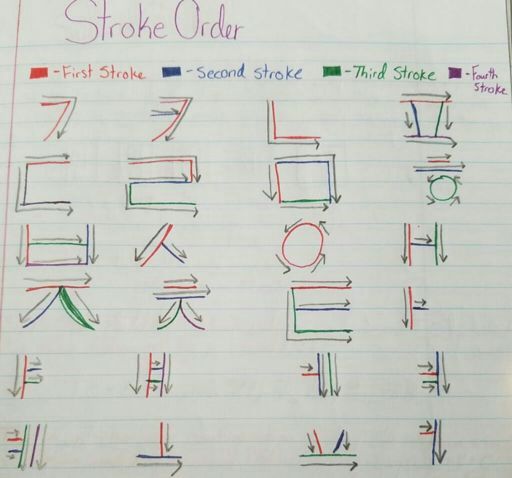 Stroke Order
-First Stroke -Second stroke -Third Stroke -Fourth Stroke
ㄱ ㅋ ㄴ ㅍ
ㄷ ㄹ ㅁ ㅎ
ㅂ ㅅ ㅇ ㅐ
ㅈ ㅊ ㅌ ㅏ
ㅑ ㅒ ㅔ ㅕ
ㅖ ㅗ ㅛ ㅓ